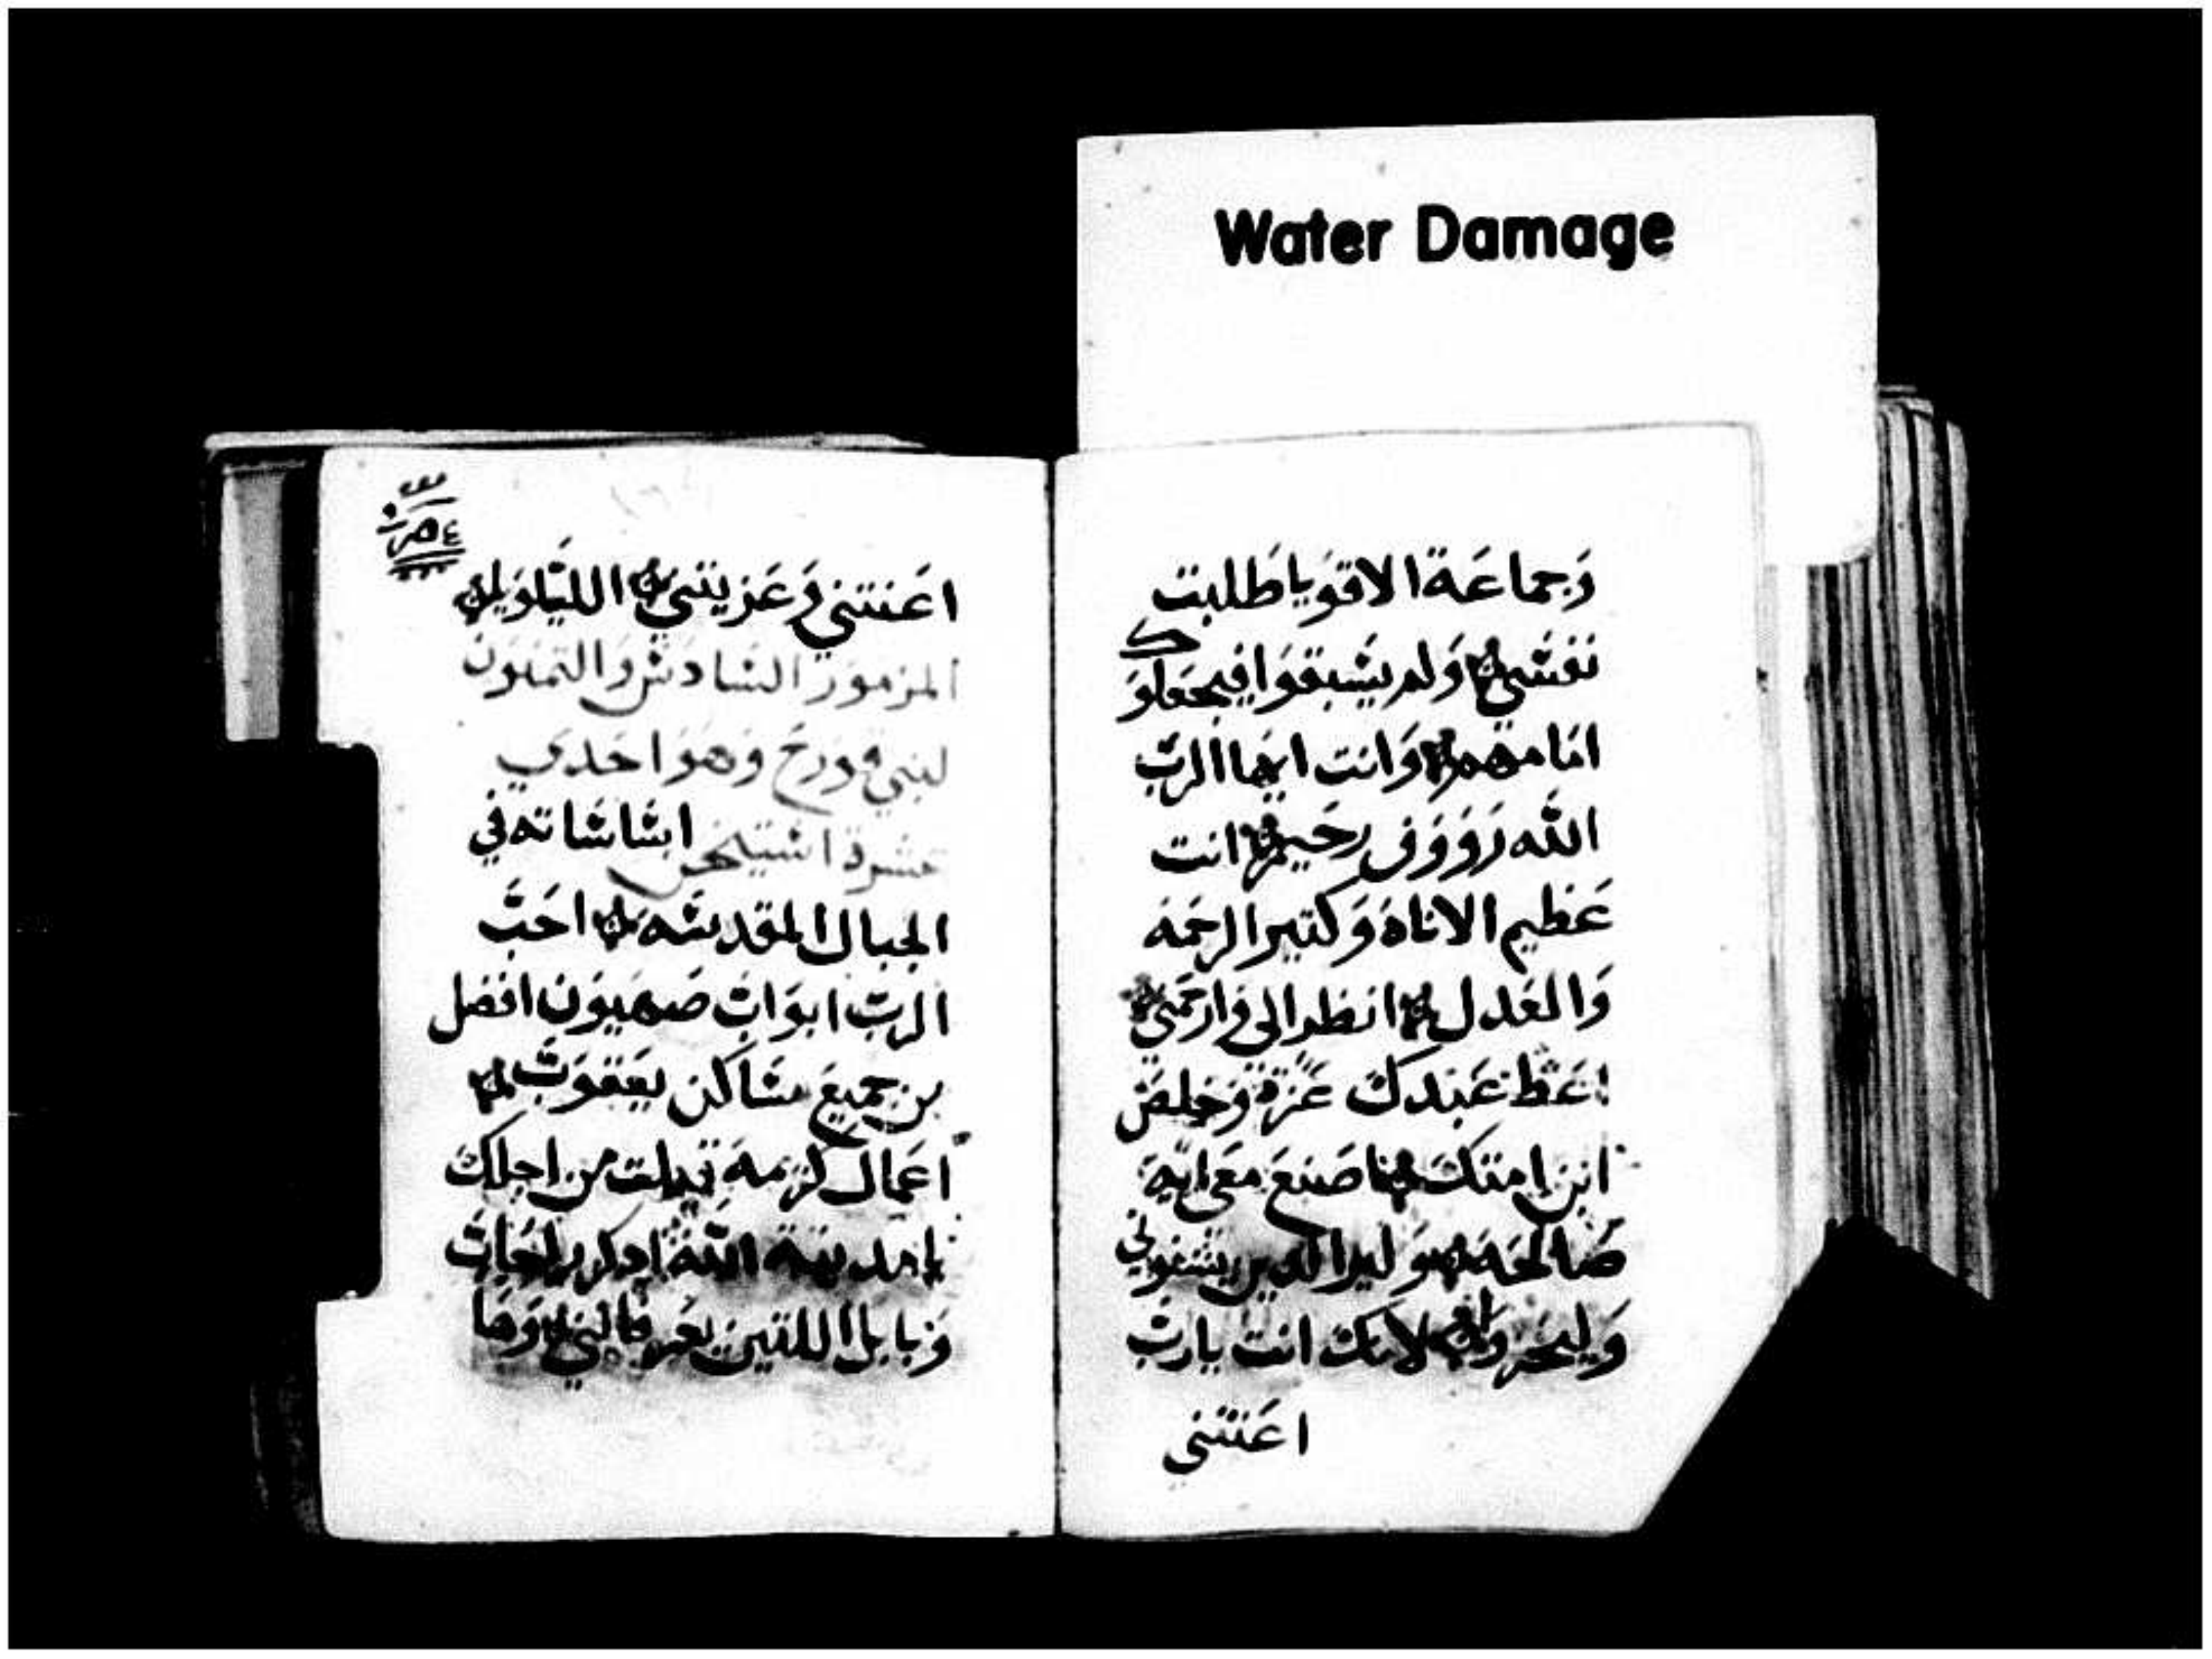 Water Damage
وَجماعَة الاقوَيا طَلبت
نفسَي وَلم يسَبقوَا فيجعَلوَك
امَامهم وَانت ايها الربّ
اللّه رَووَوَف رحَيم انت
عَظيم الاناة وَكثير الرحمَه
وَالعَدل انظر الي وَارحَمني
اعَط عَبدك عَزة وَخلصَ
ابن امتك اصَنعَ معَي ايَة
صَالحَه هوَ ليرا الدين يشنوني
وَليخزوَا لانك انت يارب
اعَنتني
اعَنتني وَعَزيتني الليَلوَيا
المزموَر السَادسَ وَالتمنوَن
لبني قوَرحَ وَهوَ احَدي
عشرة استيخن اسَاسَاته في
الجبال المقدسَه احَبّ
الربّ ابوَابَ صَهيوَن افضل
من جميعَ مسَاكن يعَقوَبَ
اعَمال كرمه قيلت من اجلك
يامدينة اللّه ادكر راحَابَ
وَبابل اللتين يعَرفاني وَها